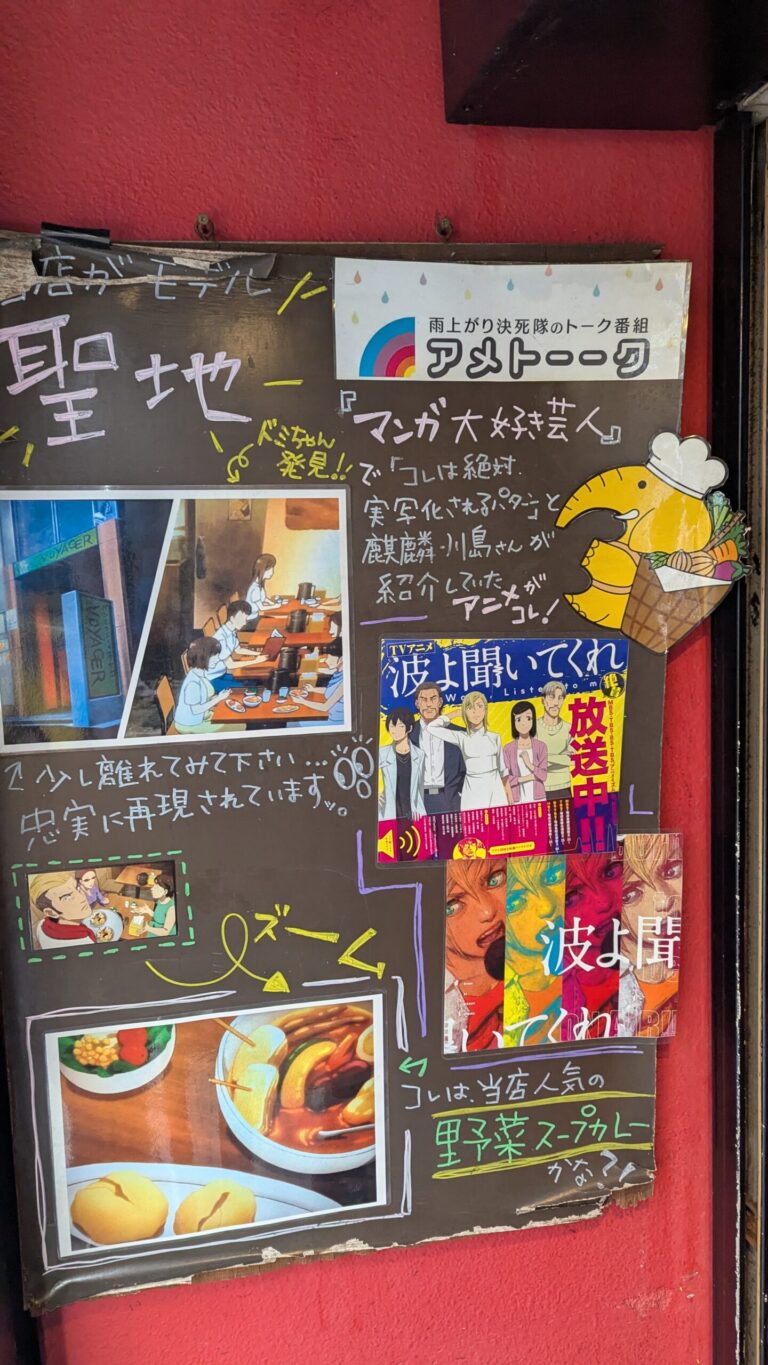 店がモデル
聖地
ドミちゃん
発見!!
雨上がり決死隊のトーク番組
アメトーーク
『マンガ大好き芸人』
で「コレは絶対
実写化されるパターン」と
麒麟・川島さんが
紹介していた
アニメが
コレ!
VOYAGER
VOYAGER
↑少し離れてみて下さい…
忠実に再現されていますッ。
TVアニメ
波よ聞いてくれ
Wave, Listen to me!
放送中!!
ズーム
波よ聞
いてくれ
コレは、当店人気の
野菜スープカレー
かな?!